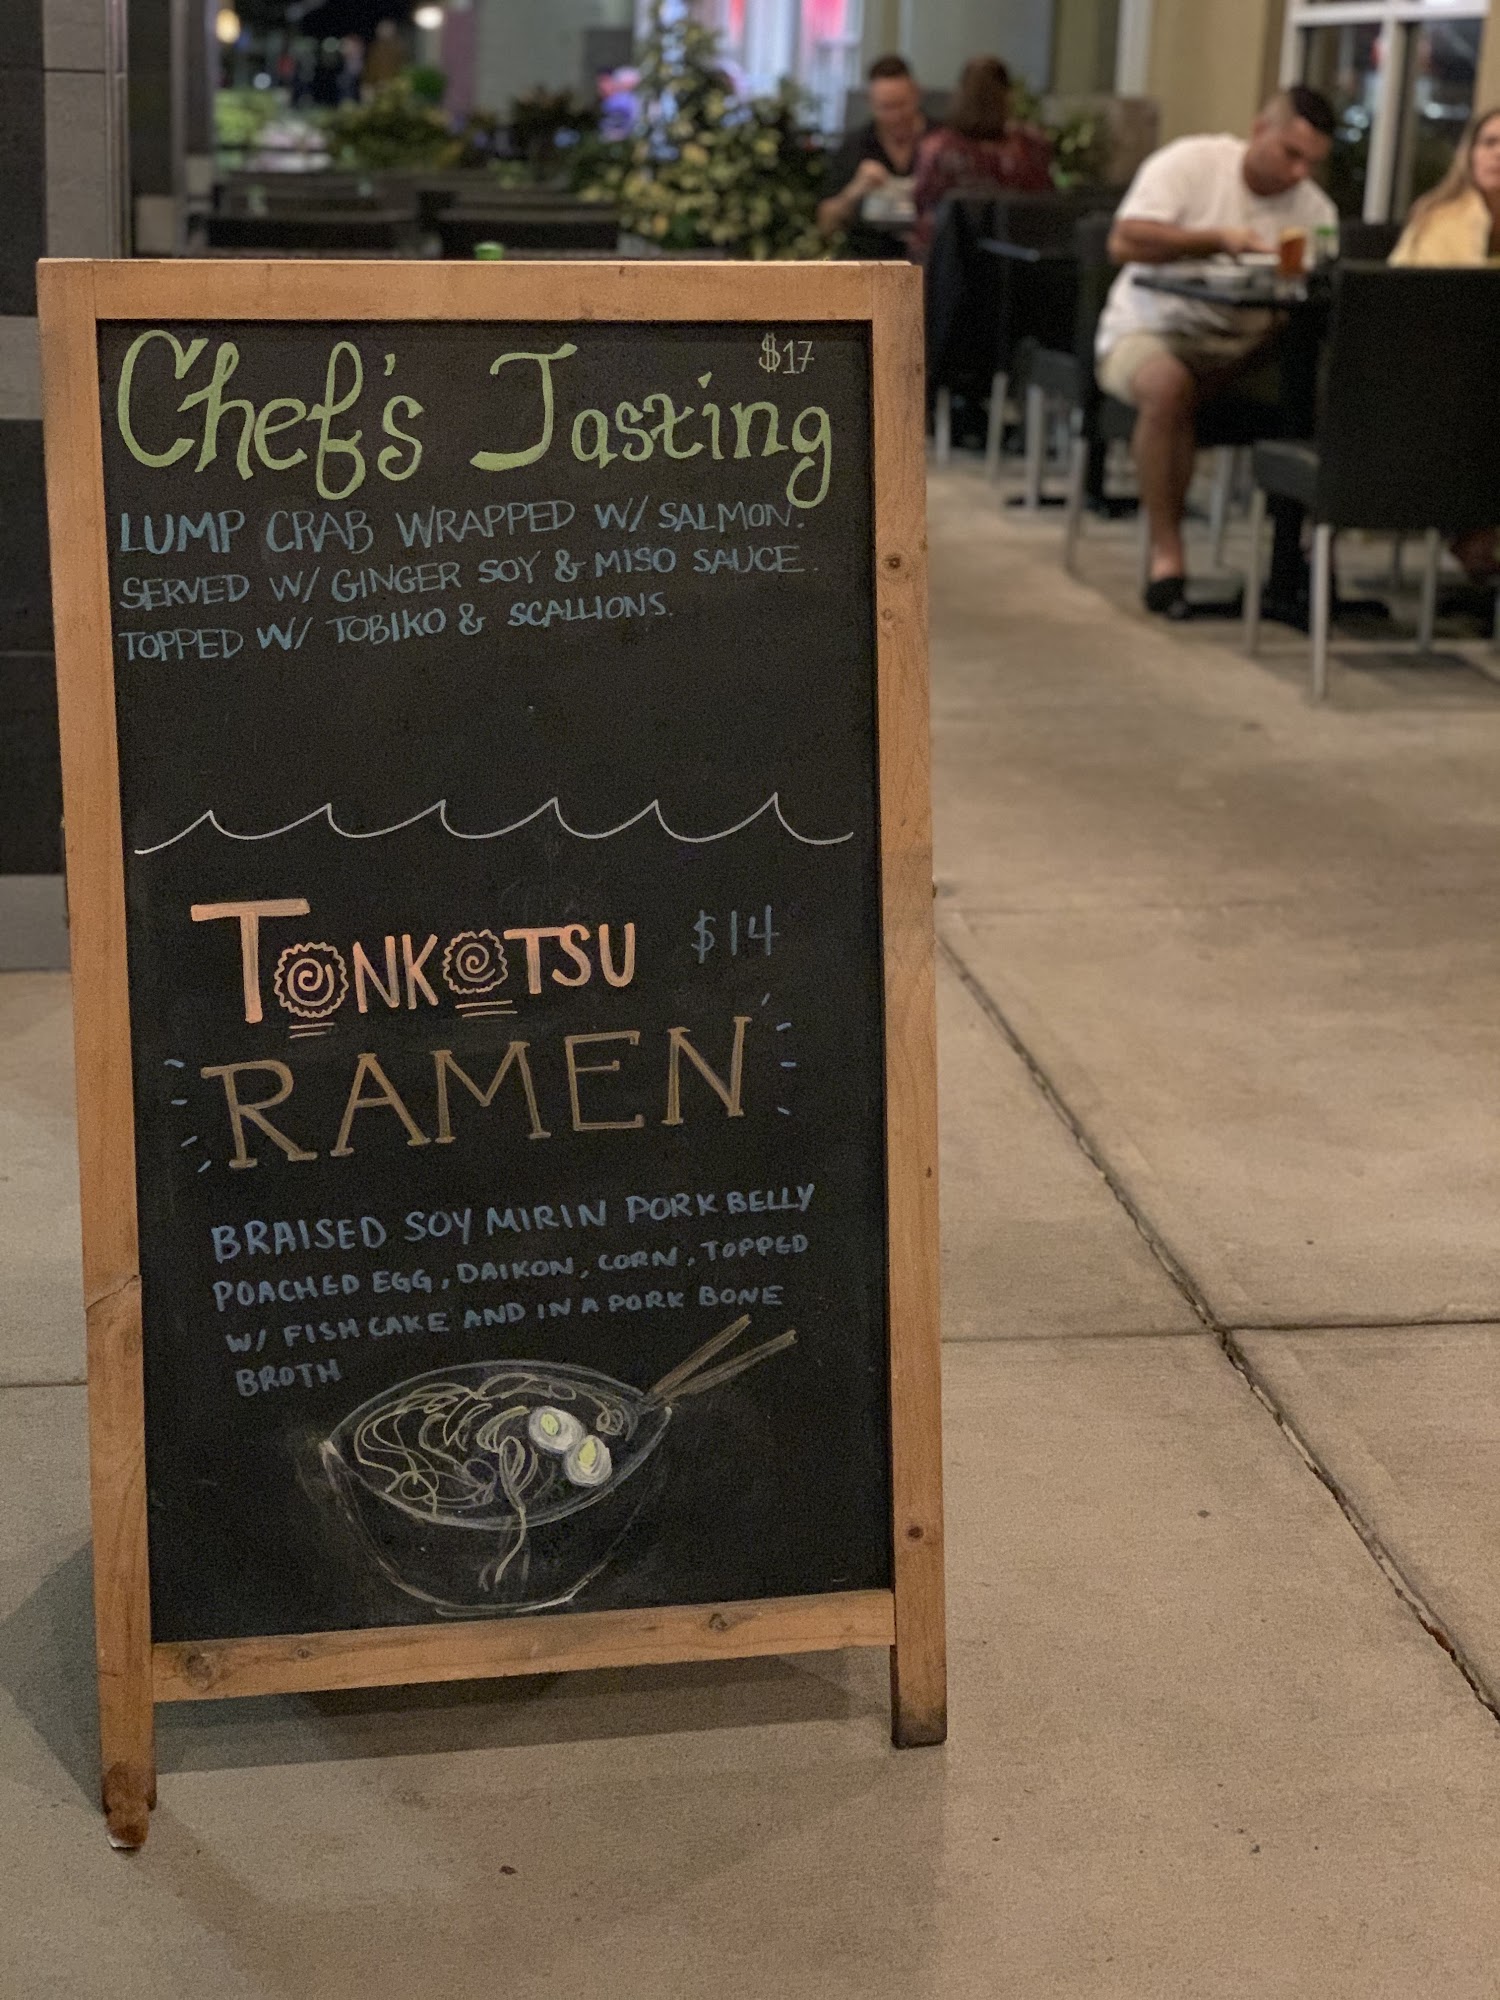 Chef's Tasting $17
LUMP CRAB WRAPPED W/ SALMON.
SERVED W/ GINGER SOY & MISO SAUCE.
TOPPED W/ TOBIKO & SCALLIONS.
TONKOTSU $14
RAMEN
BRAISED SOY MIRIN PORK BELLY
POACHED EGG, DAIKON, CORN, TOPPED
W/ FISH CAKE AND IN A PORK BONE
BROTH